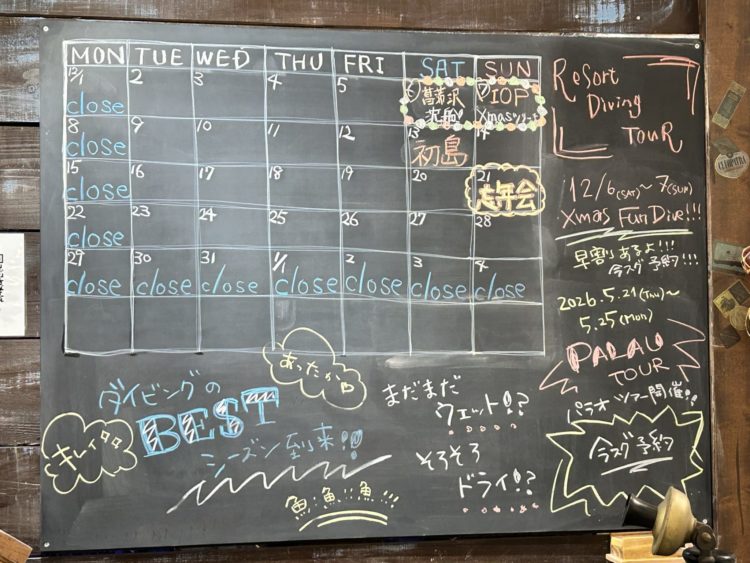 MON TUE WED THU FRI SAT SUN
12/1 2 3 4 5 6 7
close 菖蒲沢 IOP
沈船 Xmasツリー
8 9 10 11 12 13 14
close 初島
15 16 17 18 19 20 21
close 忘年会
22 23 24 25 26 27 28
close
29 30 31 1/1 2 3 4
close close close close close close close
Resort
Diving
TouR
12/6(SAT)~7(SUN)
Xmas Fun Dive!!!
早割りあるよ!!!
今スグ予約!!!
2026.5.21(THU)~
5.25(MON)
PALAU
TOUR
パラオツアー開催!!
今スグ予約
あったか
ダイビングの
BEST
シーズン到来!!!
キレイ
まだまだ
ウェット!?
そろそろ
ドライ!?
魚!魚!!魚!!!